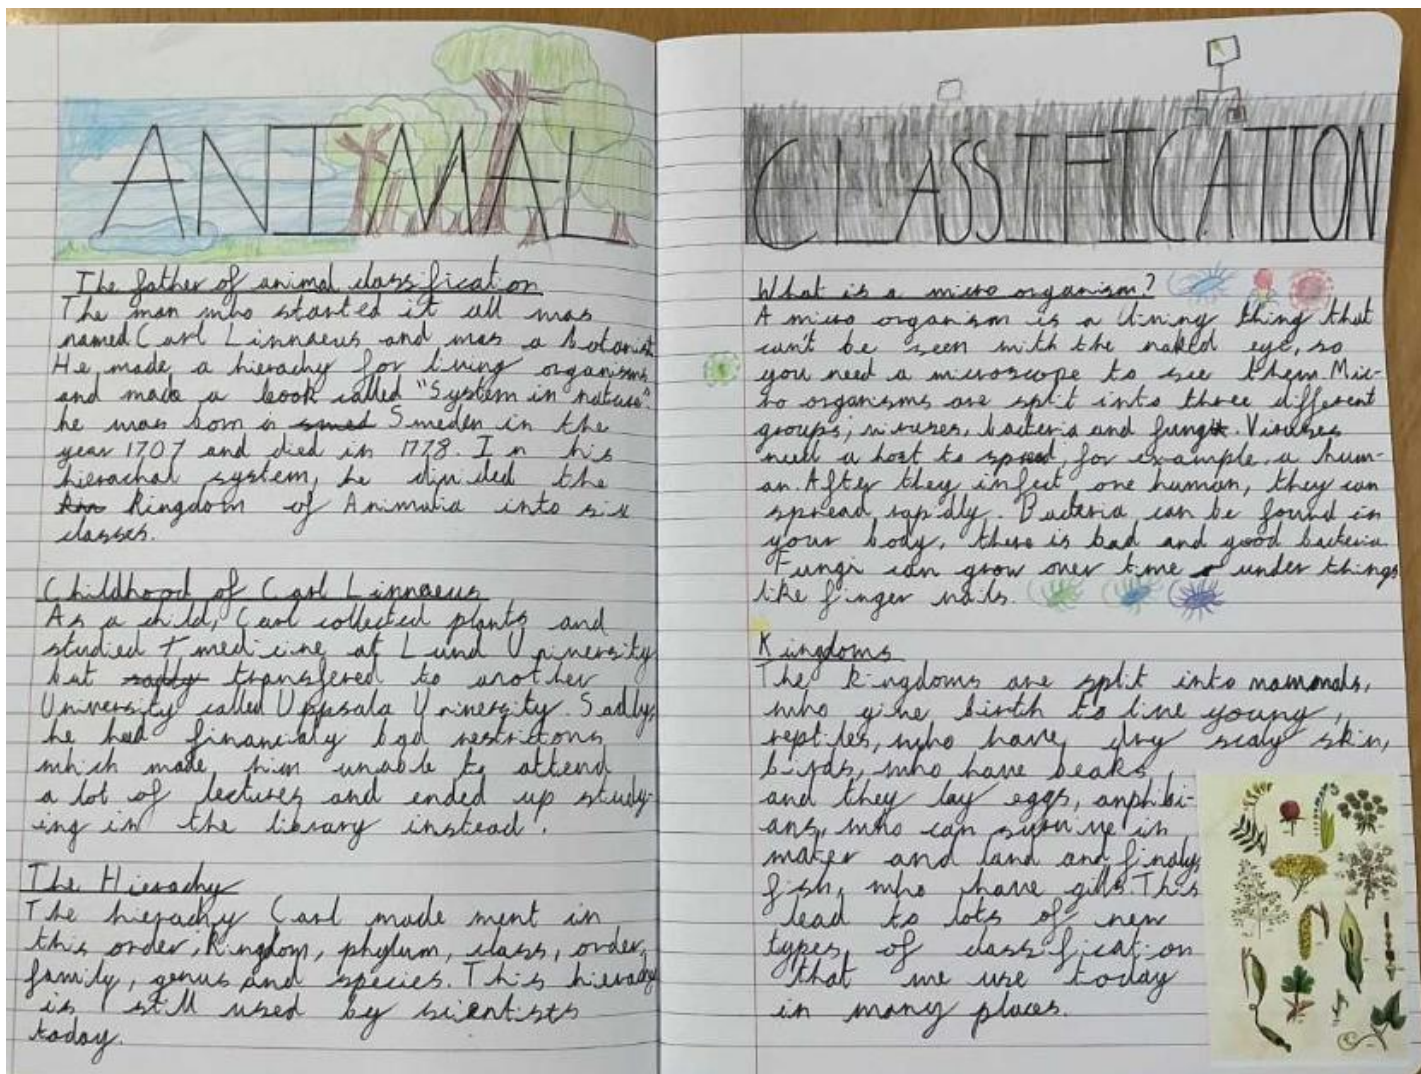 ANIMAL
The father of animal classification
The man who started it all was
named Carl Linnaeus and was a botanist
He made a hierachy for living organisms
and made a book called "System in nature".
he was born in Sweden in the
year 1707 and died in 1778. In his
hierachal system, he divided the
Kingdom of Animalia into six
classes.
Childhood of Carl Linnaeus
As a child, Carl collected plants and
studied medicine at Lund University
but transfered to another
University called Uppsala University. Sadly,
he had financialy bad restrictions
which made him unable to attend
a lot of lectures and ended up study-
ing in the library instead.
The Hierachy
The hierachy Carl made went in
this order, Kingdom, phylum, class, order,
family, genus and species. This hierachy
is still used by scientists
today.
CLASSIFICATION
What is a micro organism?
A micro organism is a living thing that
can't be seen with the naked eye, so
you need a microscope to see them. Mic-
ro organisms are split into three different
groups; viruses, bacteria and fungi. Viruses
need a host to spread, for example, a hum-
an. After they infect one human, they can
spread rapidly. Bacteria can be found in
your body, there is bad and good bacteria.
Fungi can grow over time under things
like finger nails.
Kingdoms
The kingdoms are split into mammals,
who give birth to live young,
reptiles, who have dry scaly skin,
birds, who have beaks
and they lay eggs, anphibi-
ans, who can survive in
water and land and finaly,
fish, who have gills. This
lead to lots of new
types of classification
that we use today
in many places.